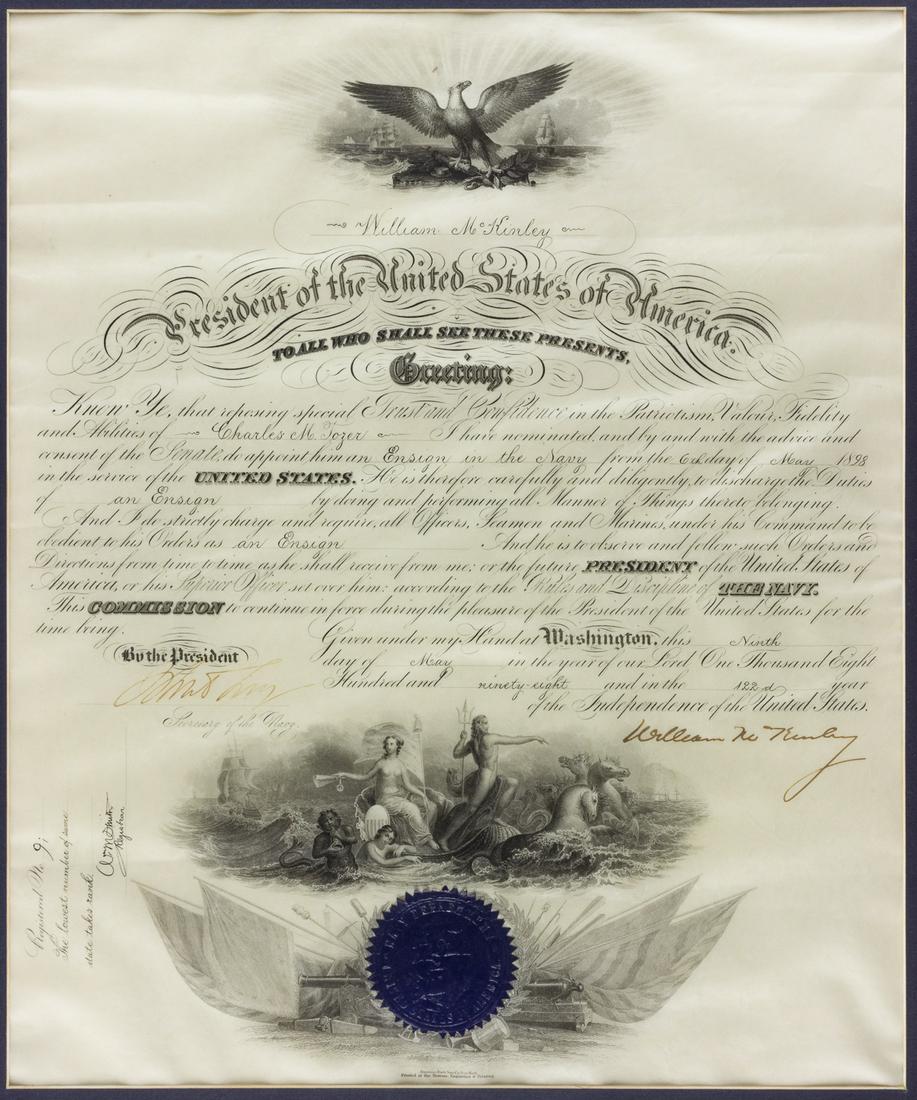 William McKinley
President of the United States of America.
TO ALL WHO SHALL SEE THESE PRESENTS,
Greeting:
Know Ye, that reposing special Trust and Confidence in the Patriotism, Valour, Fidelity
and Abilities of Charles M. Tozer I have nominated, and by and with the advice and
consent of the Senate, do appoint him an Ensign in the Navy from the 6th day of May 1898
in the service of the UNITED STATES. He is therefore carefully and diligently, to discharge the Duties
of an Ensign by doing and performing all Manner of Things thereto belonging.
And I do strictly charge and require, all Officers, Seamen and Marines, under his Command to be
obedient to his Orders as an Ensign And he is to observe and follow such Orders and
Directions from time to time as he shall receive from me; or the future PRESIDENT of the United States of
America, or his Superior Officer set over him; according to the Rules and Discipline of THE NAVY.
This COMMISSION to continue in force during the pleasure of the President of the United States for the
time being.
Given under my Hand at Washington, this Ninth
day of May in the year of our Lord, One Thousand Eight
Hundred and ninety-eight and in the 122d year
of the Independence of the United States.
By the President
Secretary of the Navy.
William McKinley
Registered No. 9;
The lowest number of same
date takes rank.
Registrar